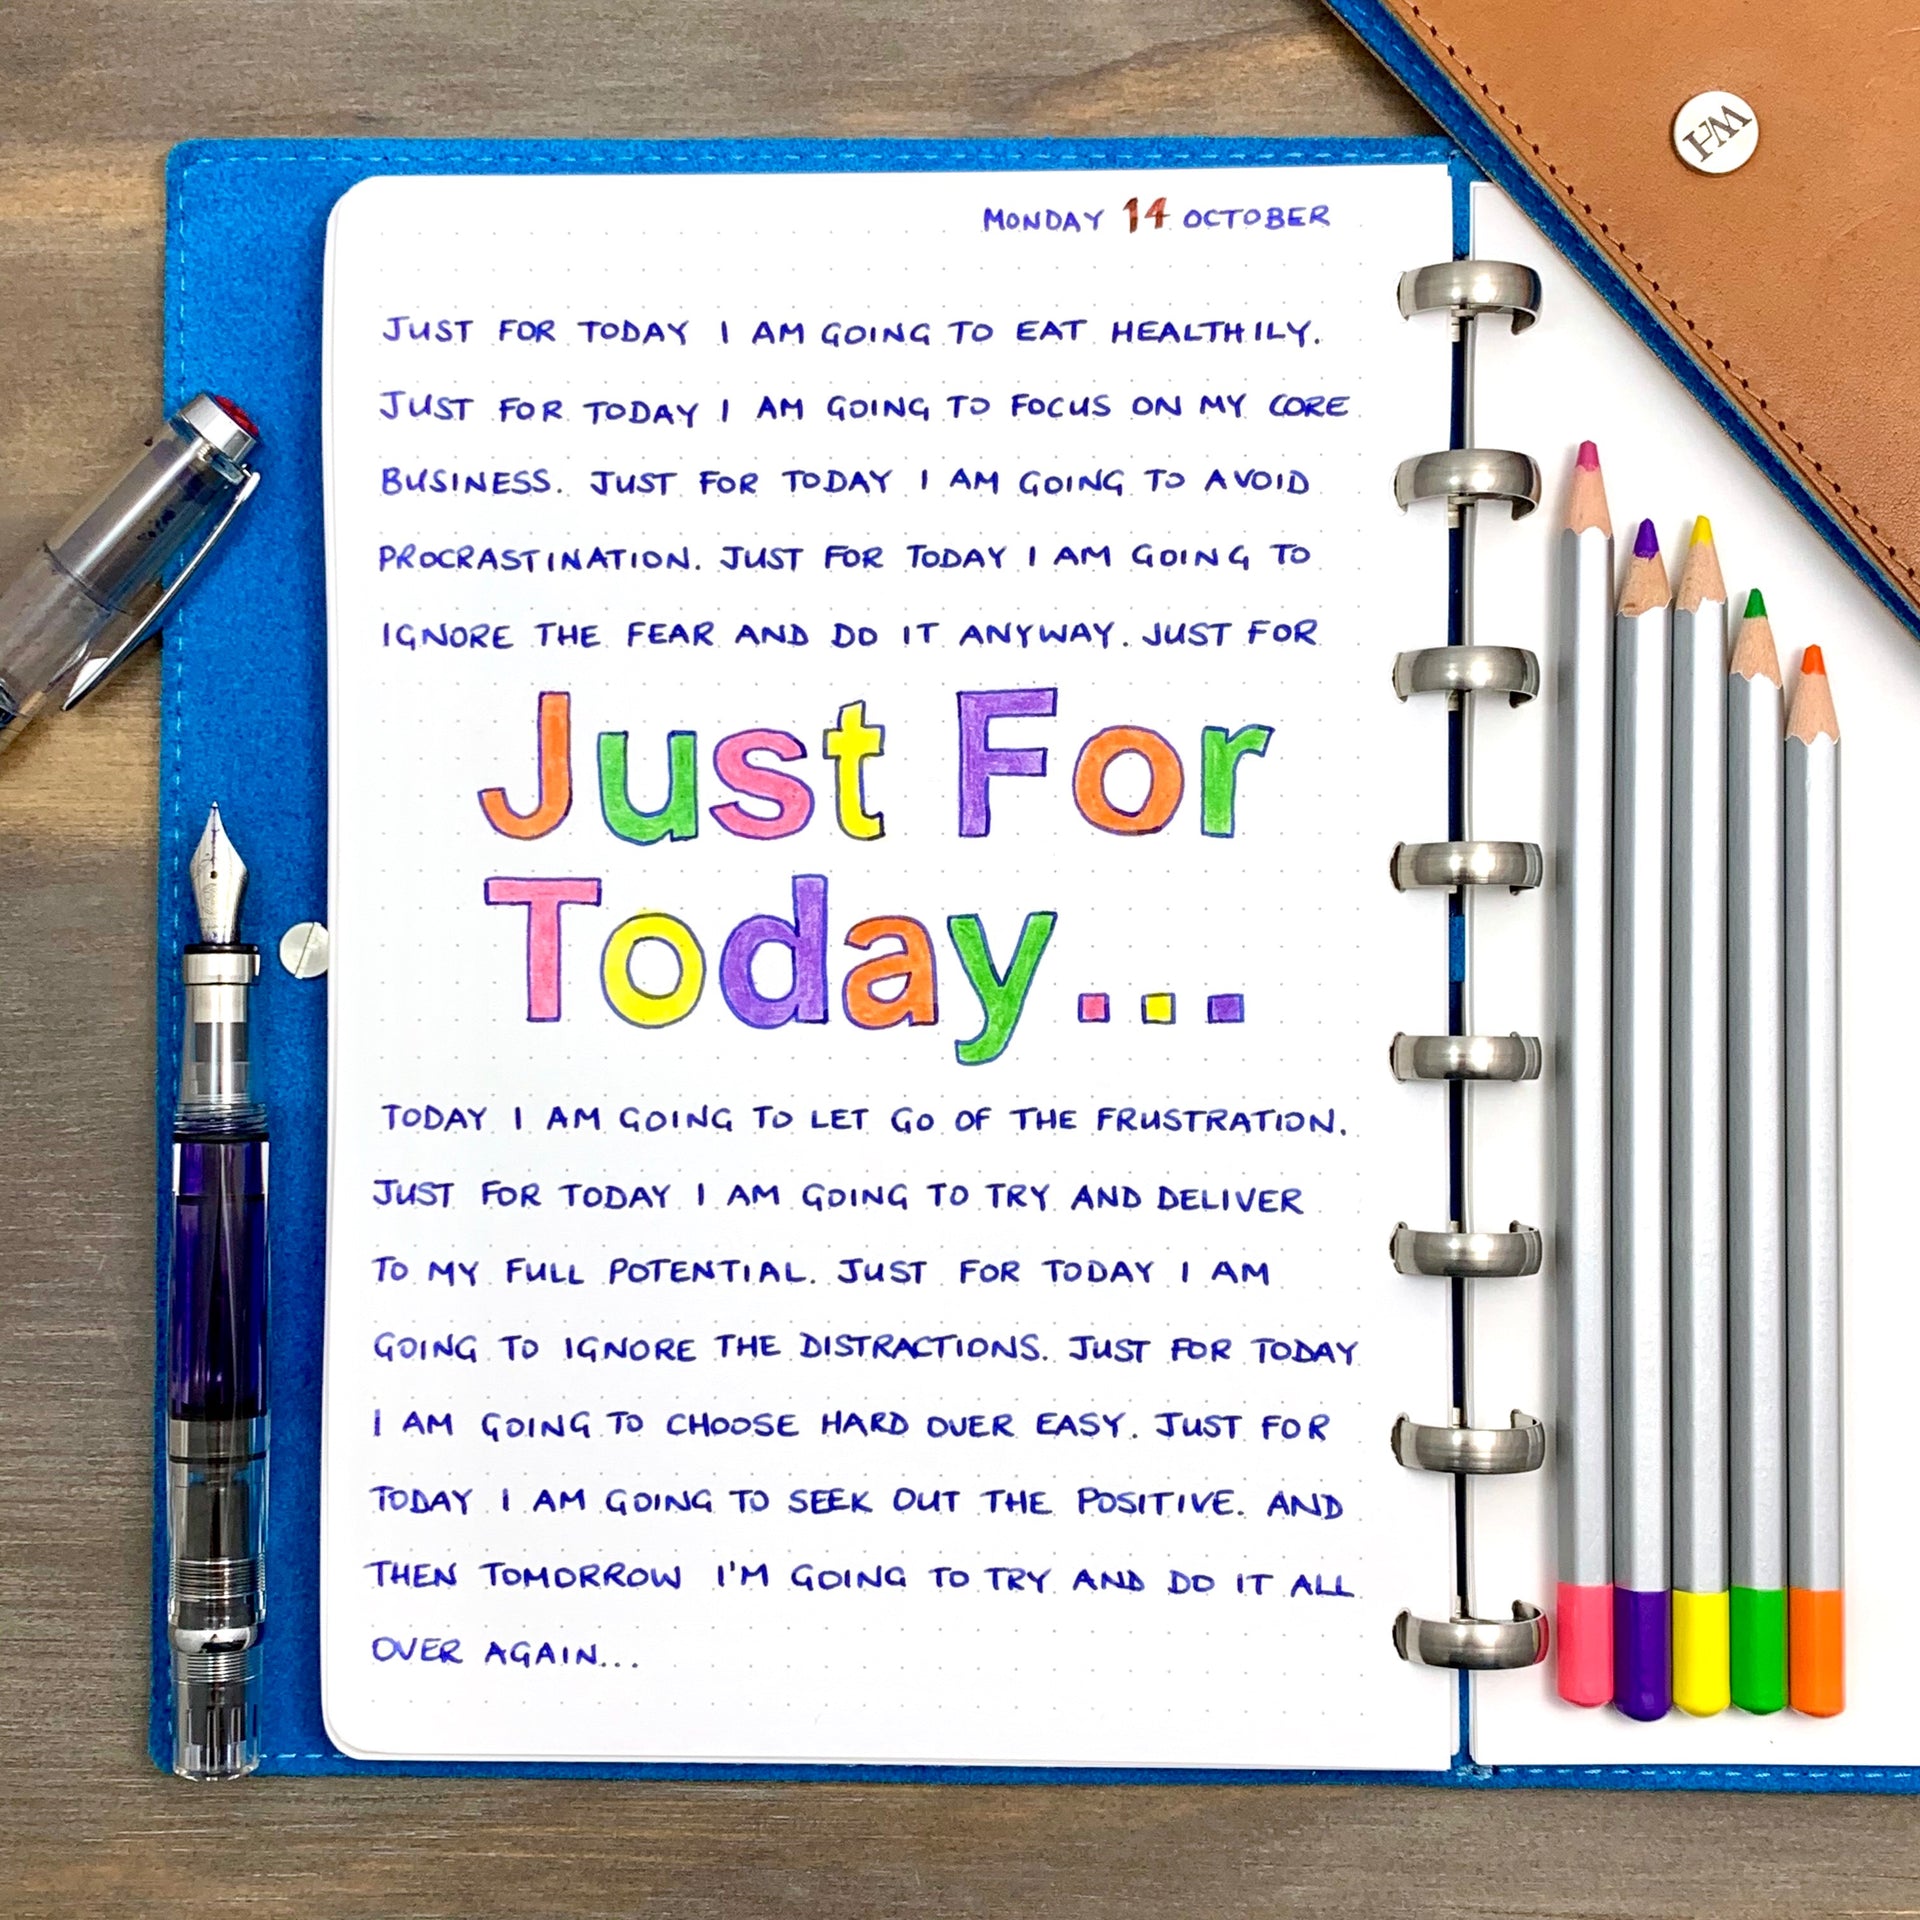 WH
MONDAY 14 OCTOBER
JUST FOR TODAY I AM GOING TO EAT HEALTHILY.
JUST FOR TODAY I AM GOING TO FOCUS ON MY CORE
BUSINESS. JUST FOR TODAY I AM GOING TO AVOID
PROCRASTINATION. JUST FOR TODAY I AM GOING TO
IGNORE THE FEAR AND DO IT ANYWAY. JUST FOR
Just For
Today...
TODAY I AM GOING TO LET GO OF THE FRUSTRATION.
JUST FOR TODAY I AM GOING TO TRY AND DELIVER
TO MY FULL POTENTIAL. JUST FOR TODAY I AM
GOING TO IGNORE THE DISTRACTIONS. JUST FOR TODAY
I AM GOING TO CHOOSE HARD OVER EASY. JUST FOR
TODAY I AM GOING TO SEEK OUT THE POSITIVE. AND
THEN TOMORROW I'M GOING TO TRY AND DO IT ALL
OVER AGAIN...